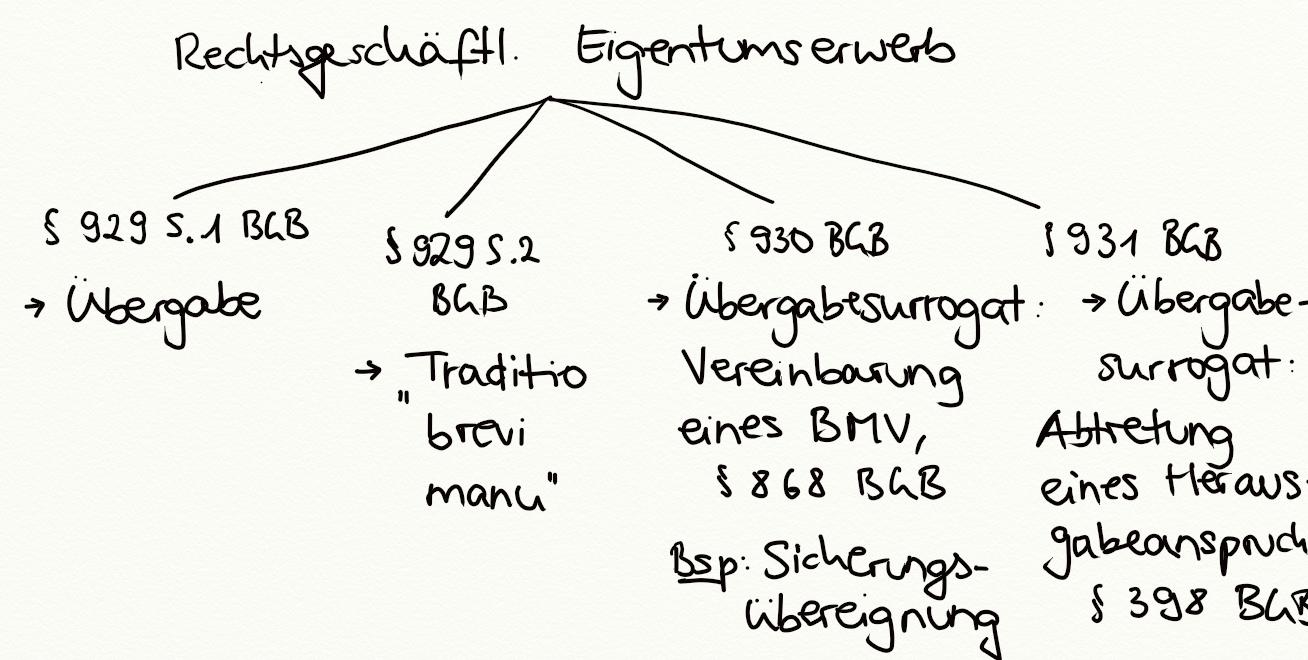 Rechtsgeschäftl. Eigentumserwerb
§ 929 S.1 BGB
→ Übergabe
§ 929 S.2
BGB
→ "Traditio
brevi
manu"
§ 930 BGB
→ Übergabesurrogat:
Vereinbarung
eines BMV,
§ 868 BGB
Bsp: Sicherungs-
übereignung
§ 931 BGB
→ Übergabe-
surrogat:
Abtretung
eines Heraus-
gabeanspruch
§ 398 BGB